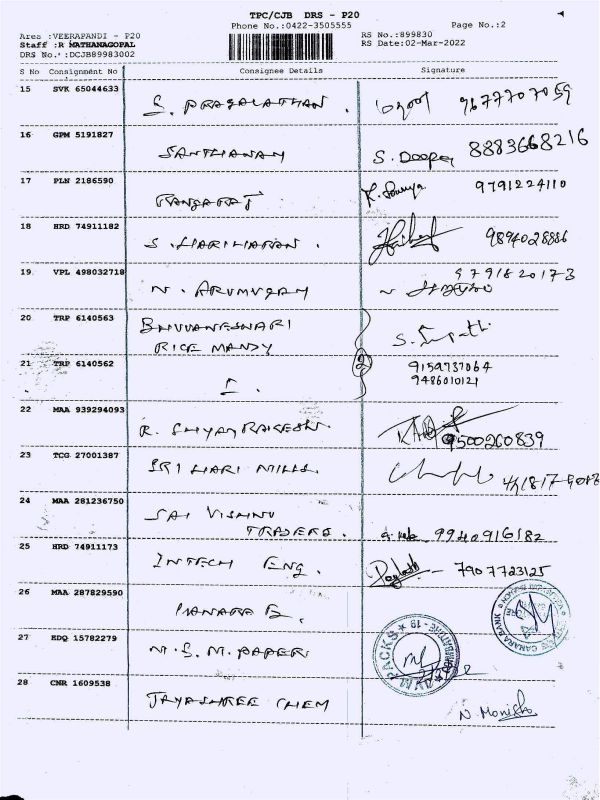 TPC/CJB DRS - P20
Phone No.:0422-3505555
Page No.:2
Area :VEERAPANDI - P20
Staff :R MATHANAGOPAL
DRS No.:DCJB89983002
RS No.:899830
RS Date:02-Mar-2022
S No Consignment No Consignee Details Signature
15 SVK 65044633 S. PRAGALATHAN . 9677707059
16 GPM 5191827 SANTHANAM S. Doopa 8883668216
17 PLN 2186590 RANGARAJ K. Sowmya 9791224110
18 HRD 74911182 S. HARIHARAN . 9894028886
19 VPL 498032718 N. ARUMUGAM 9791820173
20 TRP 6140563 BHUVANESWARI
RICE MANDY
21 TRP 6140562 2 9159737064
9486010121
22 MAA 939294093 R. SHYAM RAKESH 9500260839
23 TCG 27001387 SRI HARI MILLS.
24 MAA 281236750 SAI VISHNU
TRADERS. 9940916182
25 HRD 74911173 INTECH Eng. 7907723125
26 MAA 287829590 CANARA B. CANARA BANK
27 EDQ 15782279 M.S.M. PAPER
28 CNR 1609538 JAYASHREE CHEM N. Monisha